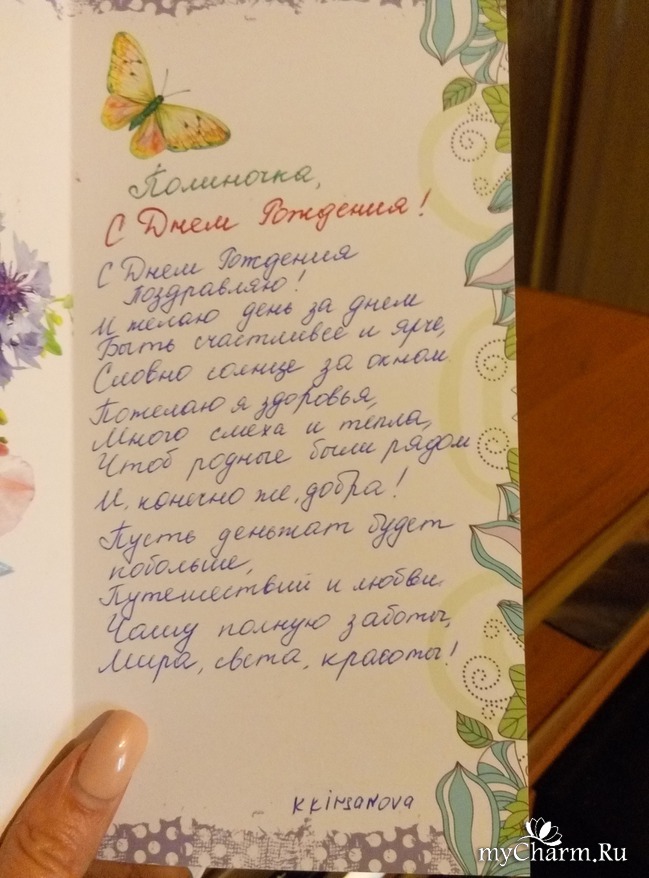 Полиночка,
С Днем Рождения!
С Днем Рождения
поздравляю!
И желаю день за днем
Быть счастливее и ярче,
Словно солнце за окном.
Пожелаю я здоровья,
Много смеха и тепла,
Чтоб родные были рядом
И, конечно же, добра!
Пусть деньжат будет
побольше,
Путешествий и любви.
Чашу полную заботы,
Мира, света, красоты!
kkirsanova
myCharm.Ru